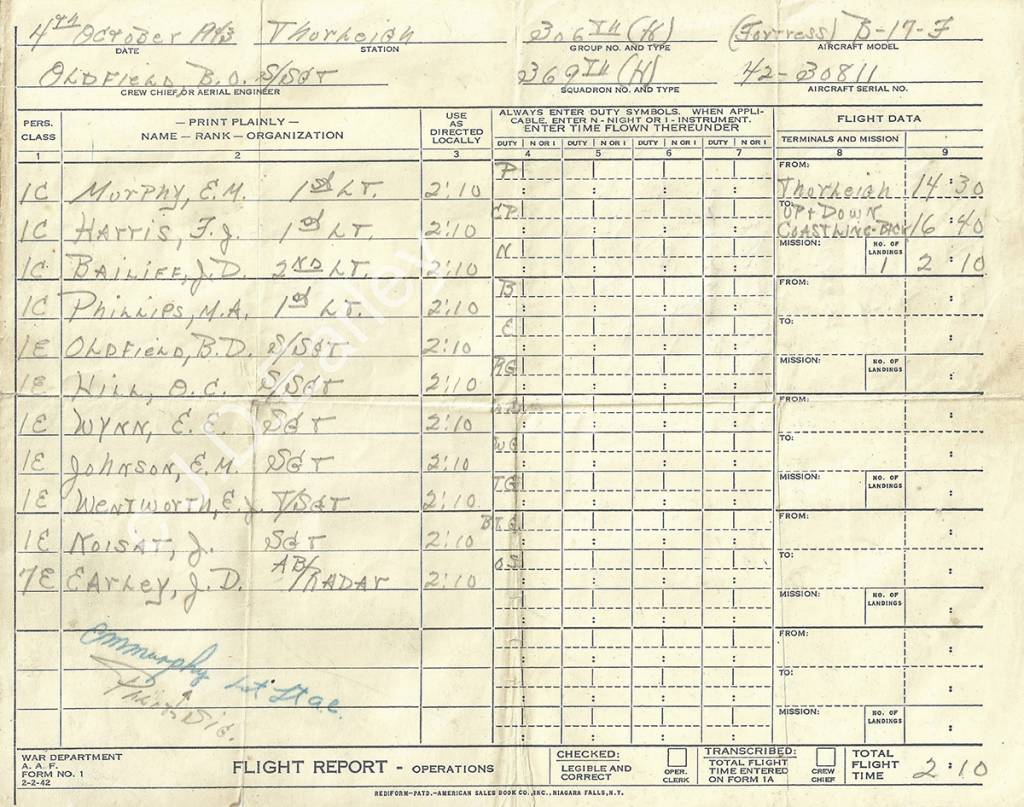 4TH October 1943 Thurleigh 306TH (H) (Fortress) B-17-F
DATE STATION GROUP NO. AND TYPE AIRCRAFT MODEL
OLDFIELD, B.O. S/SGT 369TH (H) 42-30811
CREW CHIEF OR AERIAL ENGINEER SQUADRON NO. AND TYPE AIRCRAFT SERIAL NO.
PERS. CLASS — PRINT PLAINLY — NAME — RANK — ORGANIZATION USE AS DIRECTED LOCALLY ALWAYS ENTER DUTY SYMBOLS. WHEN APPLICABLE, ENTER N - NIGHT OR I - INSTRUMENT. ENTER TIME FLOWN THEREUNDER FLIGHT DATA
DUTY N OR I DUTY N OR I DUTY N OR I DUTY N OR I TERMINALS AND MISSION
1 2 3 4 5 6 7 8 9
P FROM:
1C MURPHY, E.M. 1ST LT. 2:10 Thurleigh 14:30
CP TO: UP + DOWN
1C HARRIS, F.J. 1ST LT. 2:10 COASTLINE-BACK 16:40
N MISSION: NO. OF LANDINGS
1C BAILIFF, J.D. 2ND LT. 2:10 1 2:10
B FROM:
1C PHILLIPS, M.A. 1ST LT. 2:10
E TO:
1E OLDFIELD, B.D. S/SGT 2:10
RG MISSION: NO. OF LANDINGS
1E HILL, O.C. S/SGT 2:10
FROM:
1E WYNN, E.E. SGT 2:10
WG TO:
1E JOHNSON, E.M. SGT 2:10
TG MISSION: NO. OF LANDINGS
1E WENTWORTH, E.J. T/SGT 2:10
BTG FROM:
1E KOISAT, J. SGT 2:10
OS TO:
7E EARLEY, J.D. AB/RADAR 2:10
MISSION: NO. OF LANDINGS
FROM:
EMMurphy 1st Lt a.c.
TO:
Sig.
MISSION: NO. OF LANDINGS
WAR DEPARTMENT
A. A. F.
FORM NO. 1
2-2-42
FLIGHT REPORT - OPERATIONS
CHECKED: LEGIBLE AND CORRECT OPER. CLERK
TRANSCRIBED: TOTAL FLIGHT TIME ENTERED ON FORM 1A CREW CHIEF
TOTAL FLIGHT TIME 2:10
REDIFORM—PAT'D.—AMERICAN SALES BOOK CO., INC., NIAGARA FALLS, N.Y.